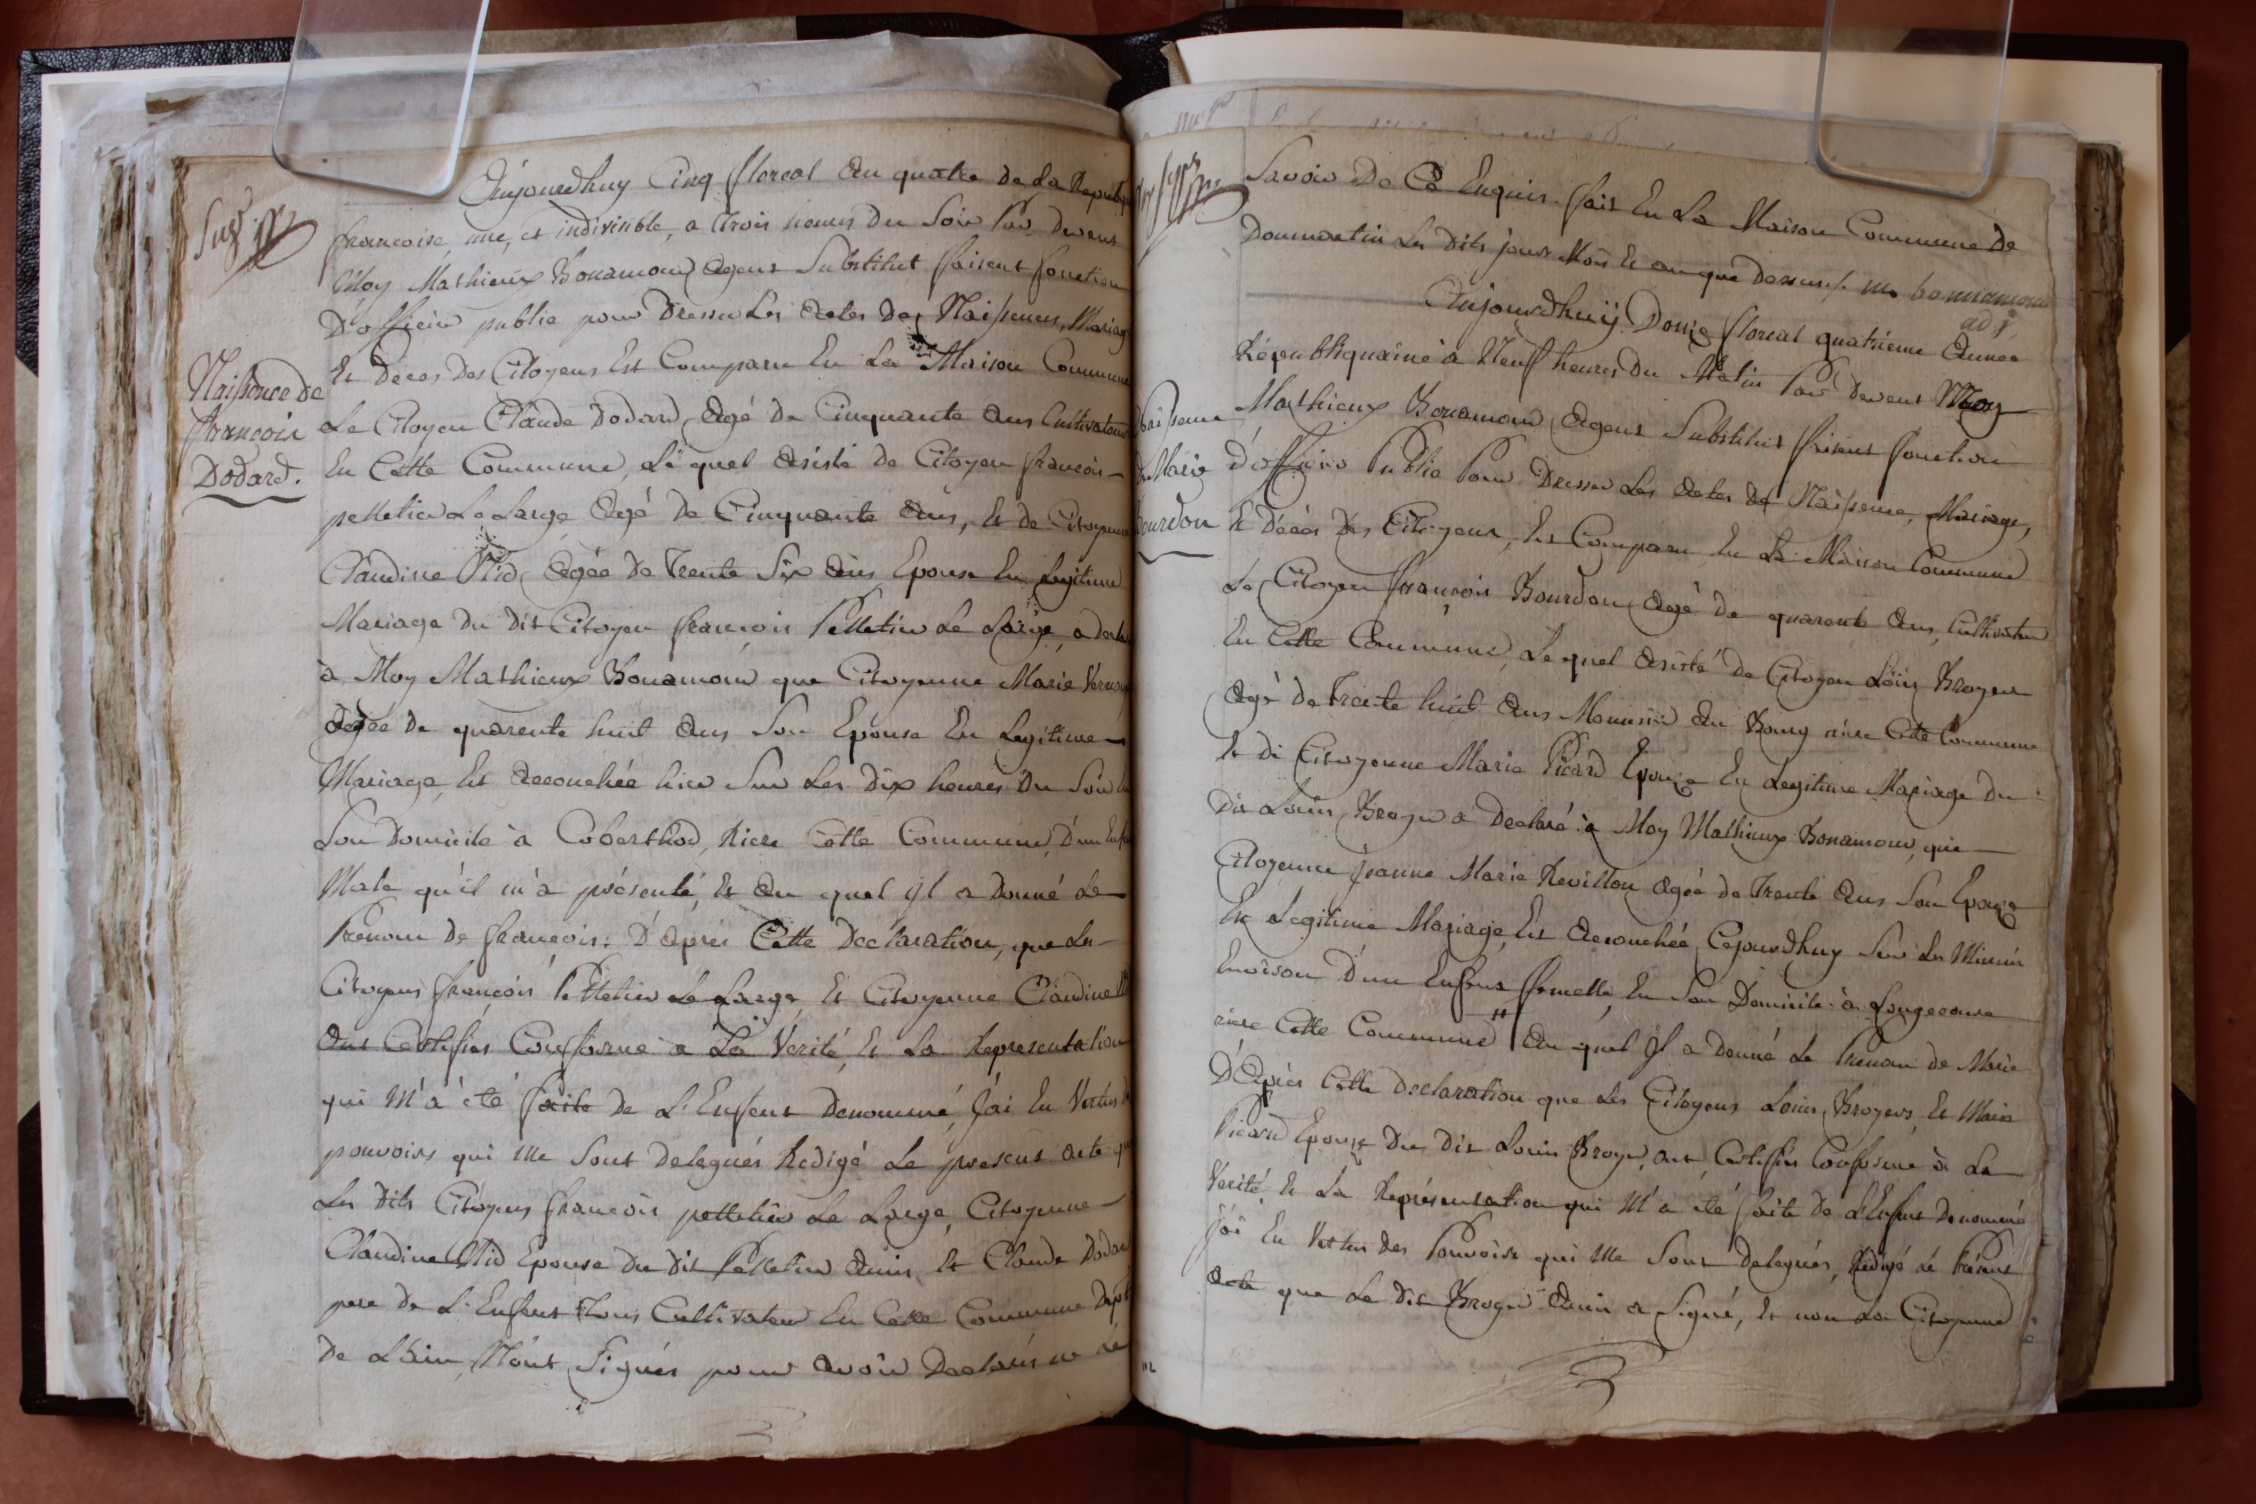 Aujourdhuy Cinq floreal Au quatre de La Republ
francoise, une, et indivisible, a trois heures du Soir Par devent
Moy Mathieux Bonamour Agent Substitut faisent fonction
D'officier public pour Dresser Les Actes des Naissences, Mariag
Et Deces Des Citoyens Est Comparu En La Maison Commune
Naissence de
francois
Dodard.
Le Citoyen Claude Dodard, Agé de Cinquante Ans Cultivateur
En Cette Commune, Le quel Asisté de Citoyen francois
pelletier Le Large Agé de Cinquante Ans, Et de Citoyenne
Claudine Agée De Trente Six Ans Epouse En Legitime
Mariage Du Dit Citoyen francois Pelletier Le Large, a
à Moy Mathieux Bonamour que Citoyenne Marie
Agée De quarente huit Ans Son Epouse En Legitime
Mariage, Est Accouchée hier Sur Les Dix heures Du Soir
Son Domicile à Coberthod, Riere Cette Commune, D'un
Male qu'il m'a présenté, Et Au quel il a Donné Le
Prénom De francois: D'Apres Cette Déclaration, que Les
Citoyens francois Pelletier Le Large, Et Citoyenne Claudine
Ont Certifiés Conforme a La Verité, Et La Representation
qui M'a été faite de L'Enfent Denommé, J'ai En Vertus
pouvoirs qui Me Sont Delegués Redigé Le present acte
Les Dits Citoyens francois pelletier Le Large, Citoyenne
Claudine Epouse Du Dit Pelletier Et Claude
pere De L'Enfent Tous Cultivateur En Cette Commune
De L'Ain, N'ont Signés pour Avoir Declarés ne
Savoir De Ce Enquis fait En La Maison Commune De
Dommartin Les Dits jour Mois Et an que Dessus m. bonnamour
Aujourdhuÿ Douze floreal quatrieme Année
Républiquaine à Neuf heures Du Matin Par devent Moy
Naissence
De Marie
Bourdon
Mathieux Bonamour Agent Substitut faisent fonction
D'officier Public Pour Dresser Les Actes de Naissence, Mariage,
Et Décès Des Citoyens, Est Comparu En La Maison Commune
Le Citoyen francois Bourdon Agé De quarente Ans, Cultivateur
En Cette Commune, Le quel Asisté De Citoyen Louis Broyer
Agé De Trente huit Ans Au Bourg riere Cette Commune
Et di Citoyenne Marie Picard Epouze En Legitime Mariage Du
Dit Louis Broyer a Declaré à Moy Mathieux Bonamour, que
Citoyenne Jeanne Marie Revillon Agée De Trente Ans Son Epouze
En Legitime Mariage Est Accouchée Cejourdhuy Sur Les
Environ D'un Enfent femelle, En Son Domicile à Longecoure
riere Cette Commune Au quel Il a Donné Le Prénom De Marie
D'Après Cette Declaration que Les Citoyens Louis Broyer, Et Marie
Picard Epouse Du Dit Louis Broyer, ont Certifiés Conforme à La
Verité Et La Représentation qui M'a été faite De L'Enfent Denommé
J'ai En Vertus Des Pouvoirs qui Me Sont Delegués, Redigé le Présent
Acte que Le Dit Broyer a Signé, Et non La Citoyenne